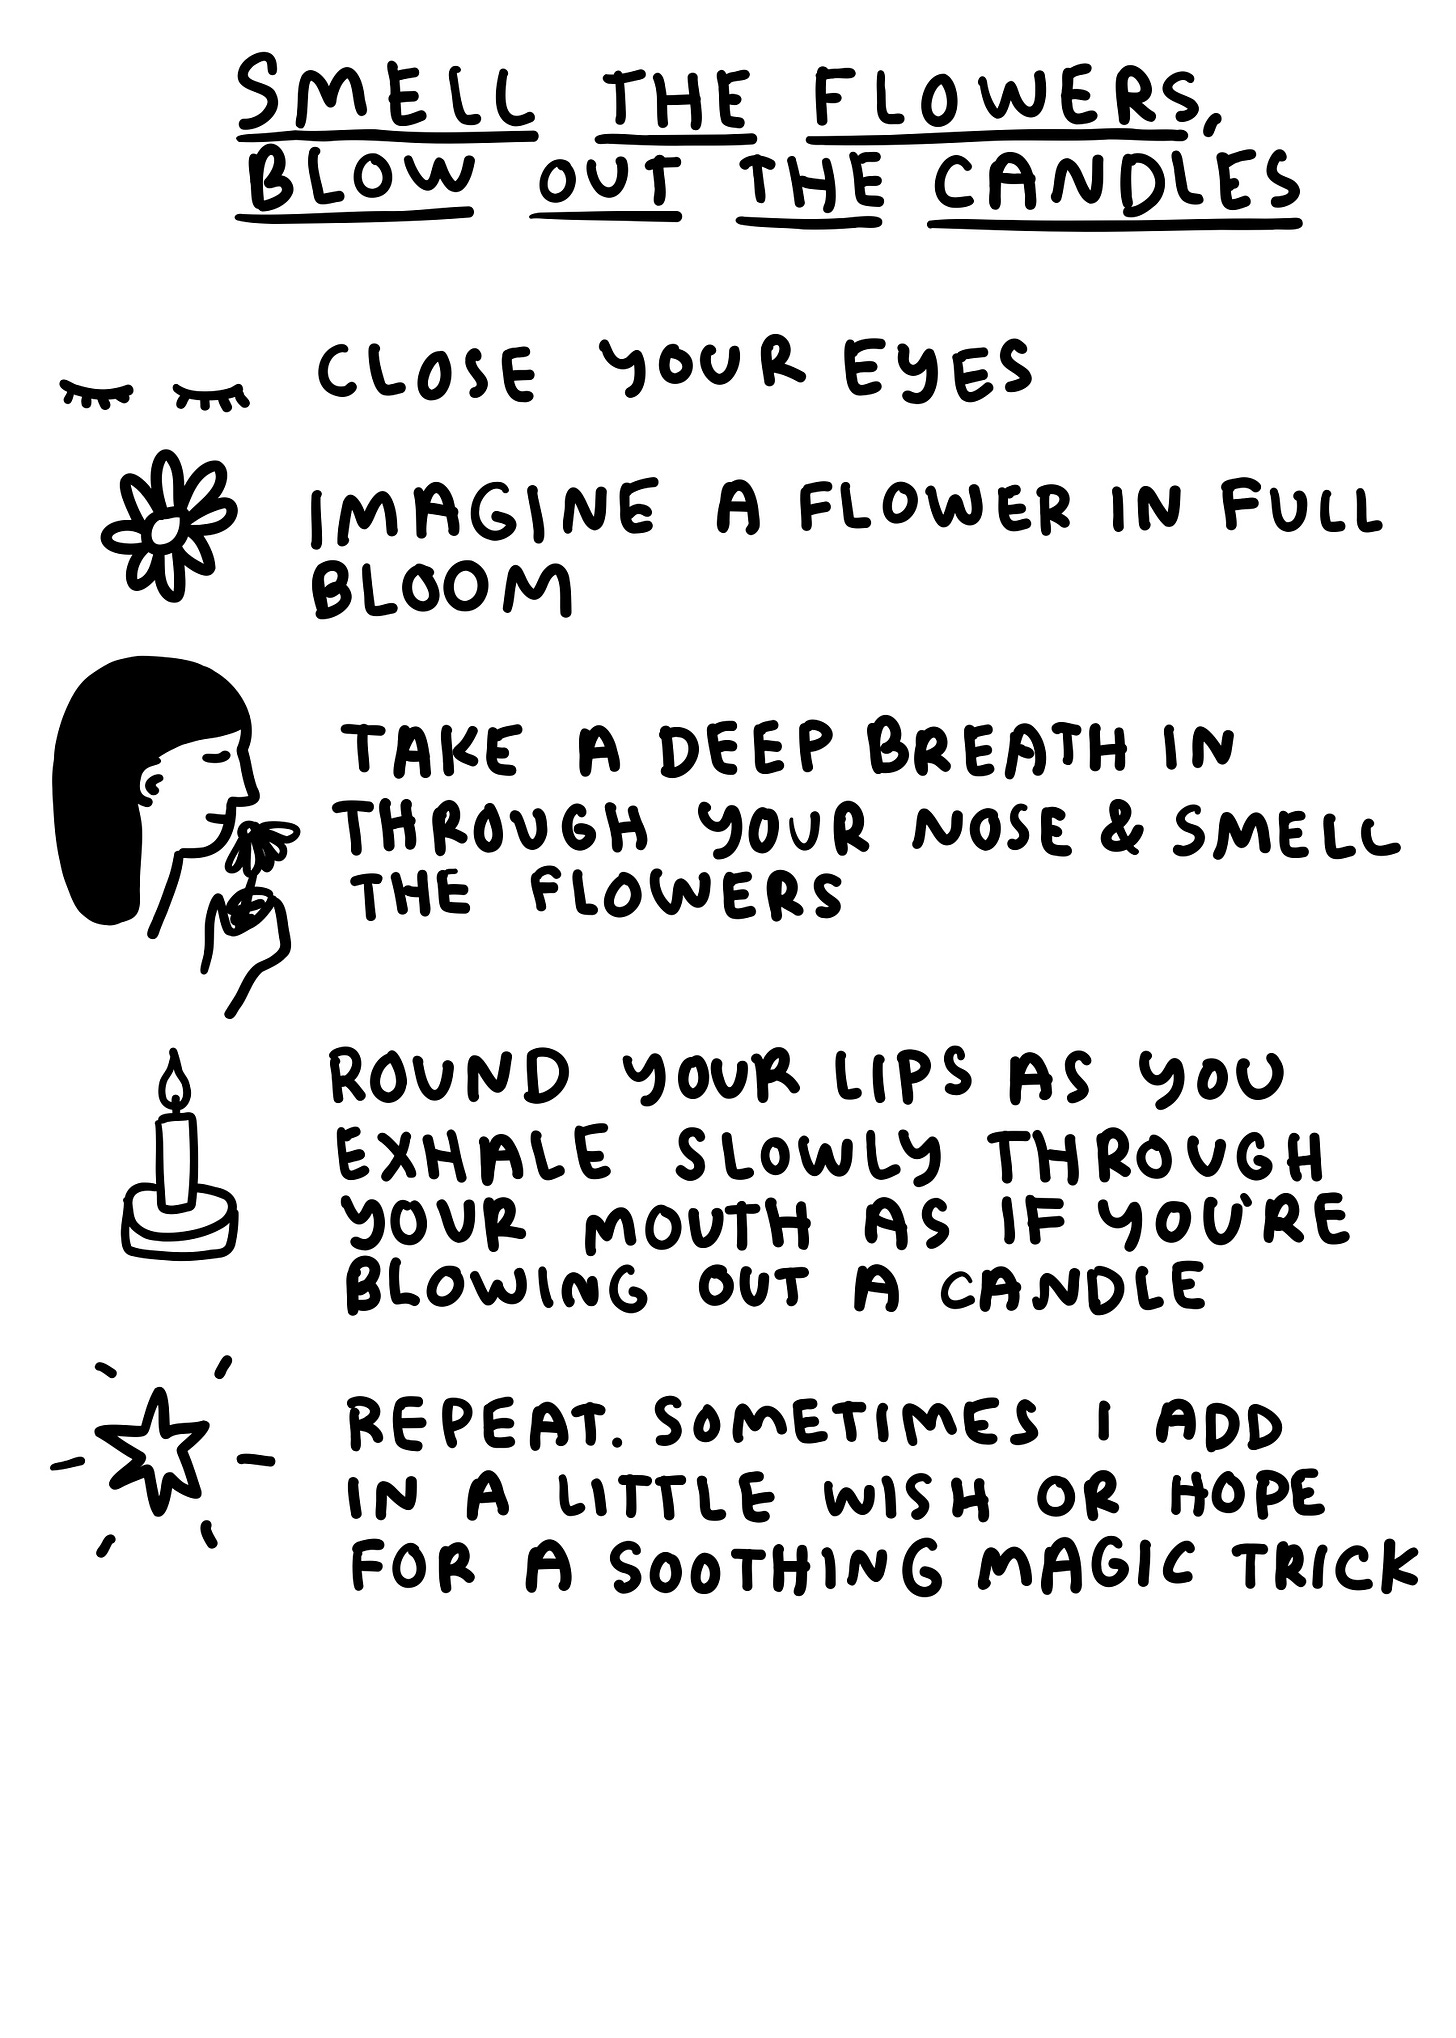 SMELL THE FLOWERS,
BLOW OUT THE CANDLES
CLOSE YOUR EYES
IMAGINE A FLOWER IN FULL
BLOOM
TAKE A DEEP BREATH IN
THROUGH YOUR NOSE & SMELL
THE FLOWERS
ROUND YOUR LIPS AS YOU
EXHALE SLOWLY THROUGH
YOUR MOUTH AS IF YOU'RE
BLOWING OUT A CANDLE
REPEAT. SOMETIMES I ADD
IN A LITTLE WISH OR HOPE
FOR A SOOTHING MAGIC TRICK